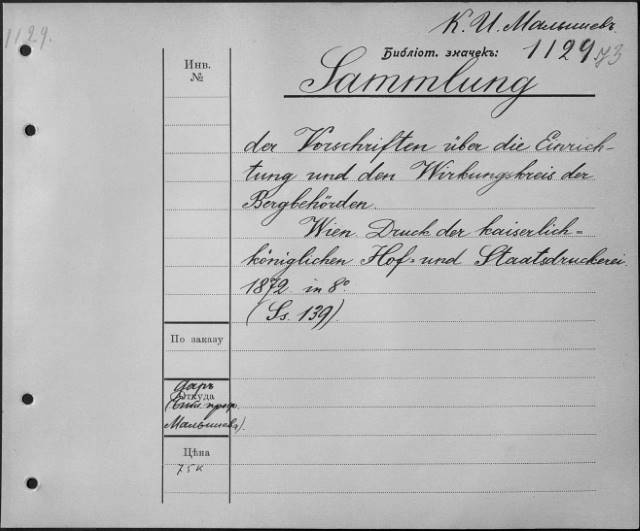 1129.
К. И. Малышевъ
Библіот. значекъ: 1129
Инв.
№
Sammlung
der Vorschriften über die Einrich-
tung und den Wirkungskreis der
Bergbehörden.
Wien. Druck der kaiserlich-
königlichen Hof- und Staatsdruckerei.
1872. in 8º
(Ss. 139).
По заказу
Даръ
Откуда
(Библ. проф.
Малышева).
Цѣна
75 к